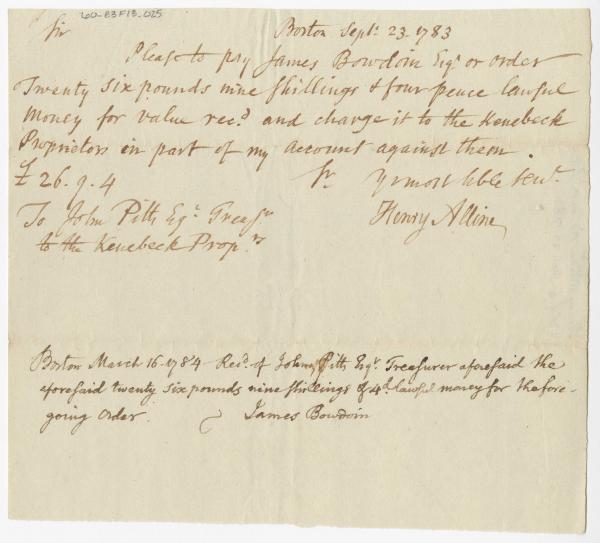 60-83F13-025
Sir Boston Septr. 23. 1783
Please to pay James Bowdoin Esqr or order
Twenty six pounds nine shillings & four pence lawful
Money for value recd. and charge it to the Kenebeck
Proprietors in part of my account against them.
£ 26. 9. 4 Sr. Yr most hble servt.
To John Pitts Esqr. Treasr Henry Alline
to the Kenebeck Proprs
Boston March 16. 1784 Recd. of John Pitts Esqr. Treasurer aforesaid the
aforesaid twenty six pounds nine shillings & 4d. lawful money for the fore-
going order. James Bowdoin